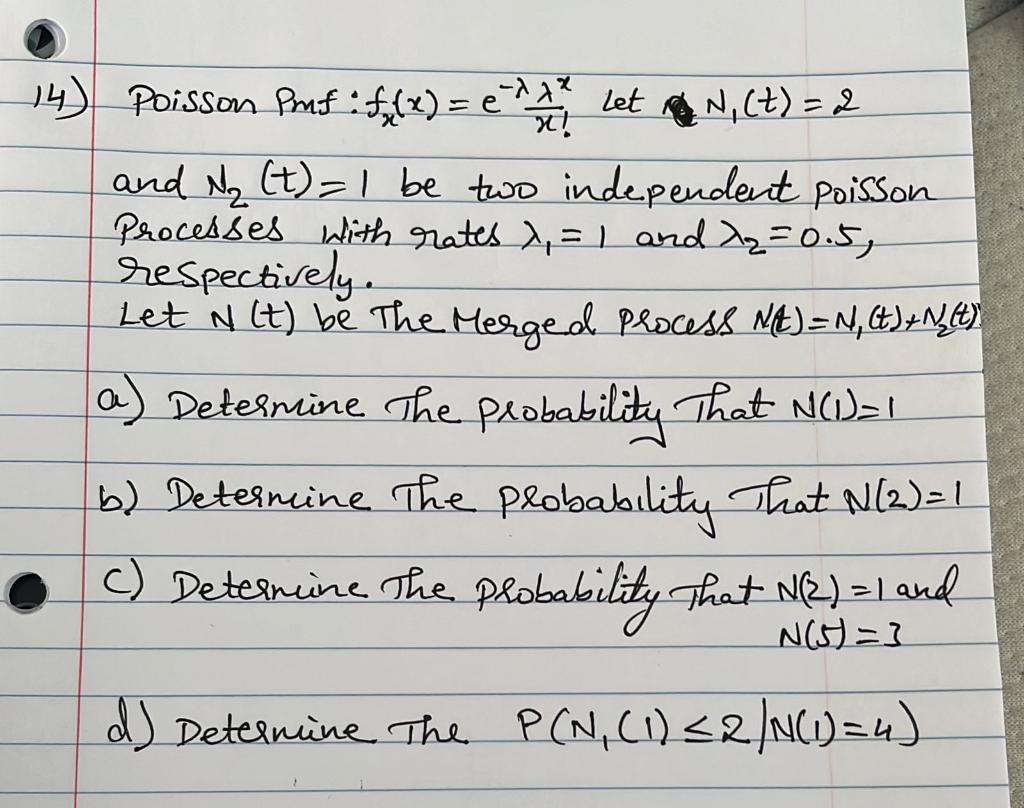 14) Poisson Pmf : fₓ(x) = e^-λ λ^x/x! Let N₁(t) = 2
and N₂(t) = 1 be two independent poisson
Processes With rates λ₁ = 1 and λ₂ = 0.5,
respectively.
Let N(t) be The Merged process N(t) = N₁(t) + N₂(t)
a) Determine The probability That N(1)=1
b) Determine The probability That N(2)=1
c) Determine The probability That N(2) = 1 and
N(5) = 3
d) Determine The P(N₁(1) ≤ 2 | N(1) = 4)